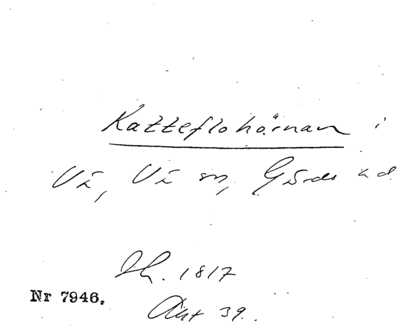 Kattteflohörnan i
Vä, Vä sn, Gärds hd
Ih. 1817
Nr 7946.
Akt 39.